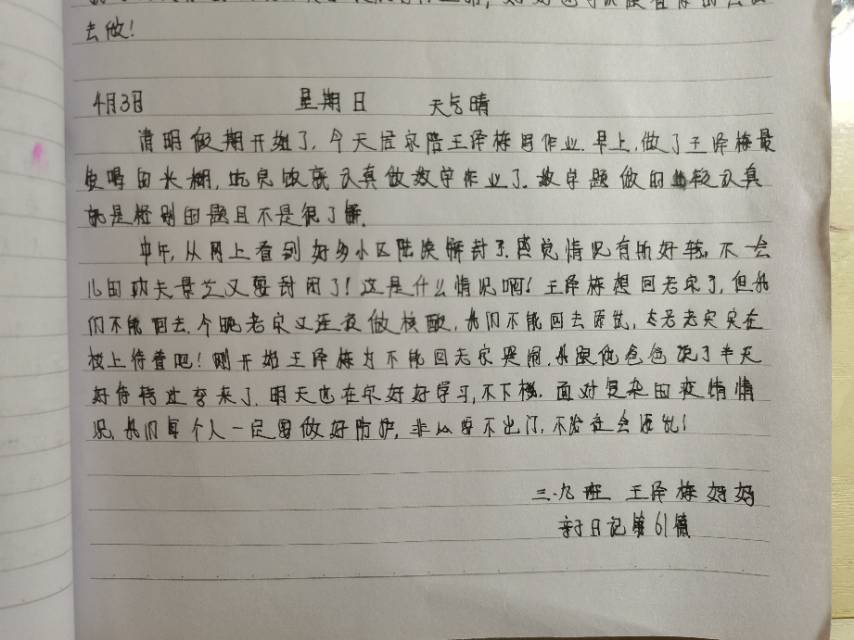 去做!
4月3日 星期日 天气晴
清明假期开始了,今天居家陪王泽栋写作业.早上,做了王泽栋最
爱喝的米糊,吃完饭就认真做数学作业了.数学题做的比较认真
就是个别的题目不是很了解.
中午,从网上看到好多小区陆续解封了.感觉情况有所好转,不一会
儿的功夫又要封闭了!这是什么情况啊!王泽栋想回老家了,但我
们不能回去.今晚老家又连夜做核酸,我们不能回去添乱,老老实实在
楼上待着吧!刚开始王泽栋为不能回老家哭闹,我跟他爸爸说了半天
好待转过弯来了.明天也在家好好学习,不下楼.面对复杂的疫情情
况,我们每个人一定要做好防护,非必要不出门,不给社会添乱!
三.九班 王泽栋妈妈
亲子日记第61篇